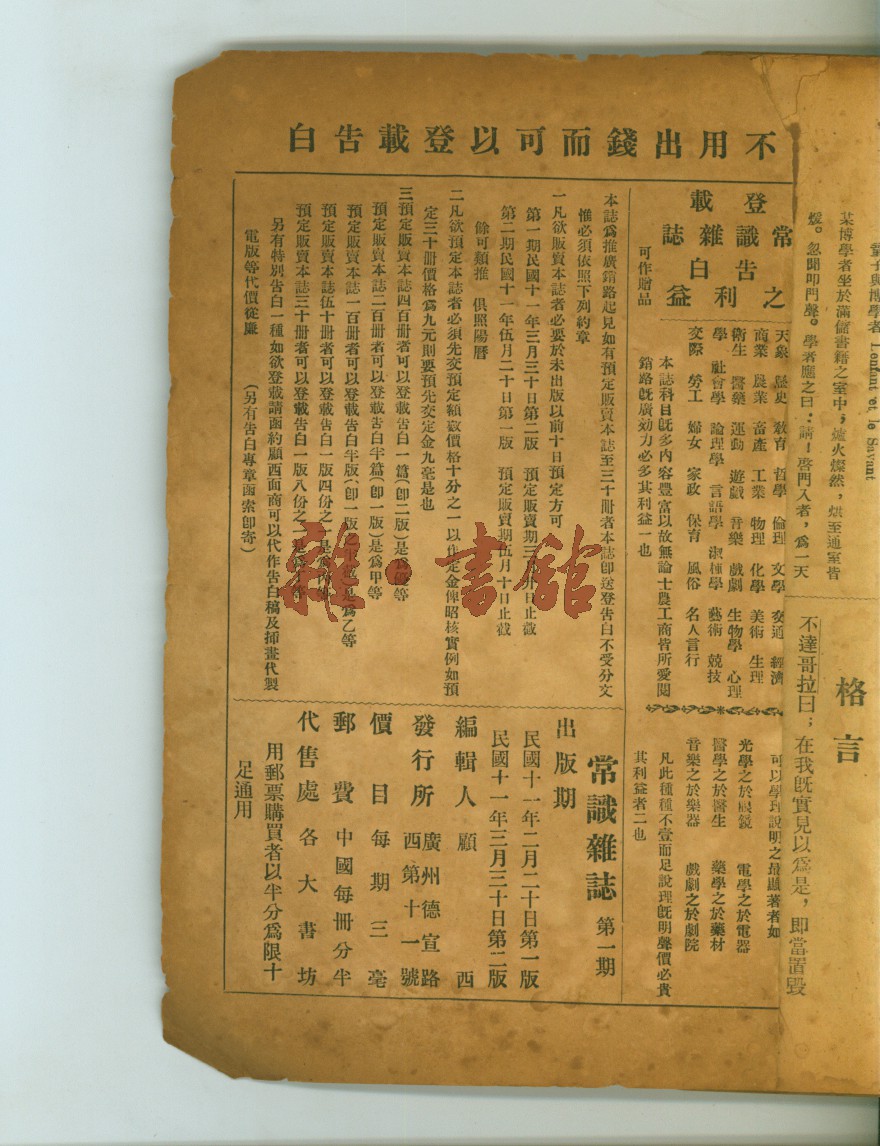 不用出錢而可以登載告白
登載
常識雜誌
告白
之利益
可作贈品
天象 歷史 敎育 哲學 倫理 文學 交通 經濟
商業 農業 畜產 工業 物理 化學 美術 生理
衛生 醫藥 運動 遊戲 音樂 戲劇 生物學 心理
學 社會學 論理學 言語學 淑種學 藝術 競技
交際 勞工 婦女 家政 保育 風俗 名人言行
本誌科目旣多內容豐富以故無論士農工商皆所愛閱
銷路旣廣効力必多其利益一也
可以學理說明之最顯著者如
光學之於眼鏡 電學之於電器
醫學之於醫生 藥學之於藥材
音樂之於樂器 戲劇之於劇院
凡此種種不壹而足說理旣明聲價必貴
其利益者二也
本誌爲推廣銷路起見如有預定販賣本誌至三十冊者本誌卽送登告白不受分文
惟必須依照下列約章
一凡欲販賣本誌者必要於未出版以前十日預定方可
第一期民國十一年三月三十日第二版 預定販賣期三月 日止截
第二期民國十一年伍月二十日第一版 預定販賣期伍月十日止截
餘可類推 俱照陽曆
二凡欲預定本誌者必須先交預定額數價格十分之一以作定金俾昭核實例如預
定三十冊價格爲九元則要預先交定金九毫是也
三預定販賣本誌四百冊者可以登載告白一篇(卽二版)是爲 等
預定販賣本誌二百冊者可以登載告白半篇(卽一版)是爲甲等
預定販賣本誌一百冊者可以登載告白半版(卽一版之 是爲乙等
預定販賣本誌伍十冊者可以登載告白一版四份之一是爲丙等
預定販賣本誌三十冊者可以登載告白一版八份之一是爲丁等
另有特別告白一種如欲登載請函約顧西面商可以代作告白稿及揷畫代製
電版等代價從廉 (另有告白專章函索卽寄)
常識雜誌 第一期
出版期
民國十一年二月二十日第一版
民國十一年三月三十日第二版
編輯人 顧西
發行所 廣州德宣路
西第十一號
價目 每期三毫
郵費 中國每冊分半
代售處 各大書坊
用郵票購買者以半分爲限十
足通用
童子與博學者 Lenfant et le Savant
某博學者坐於滿儲書籍之室中，爐火燦然，烘至通室皆
煖。忽聞叩門聲。學者應之曰：請！啓門入者，爲一天
格言
不達哥拉曰；在我旣實見以爲是，卽當置毀
雜·書館